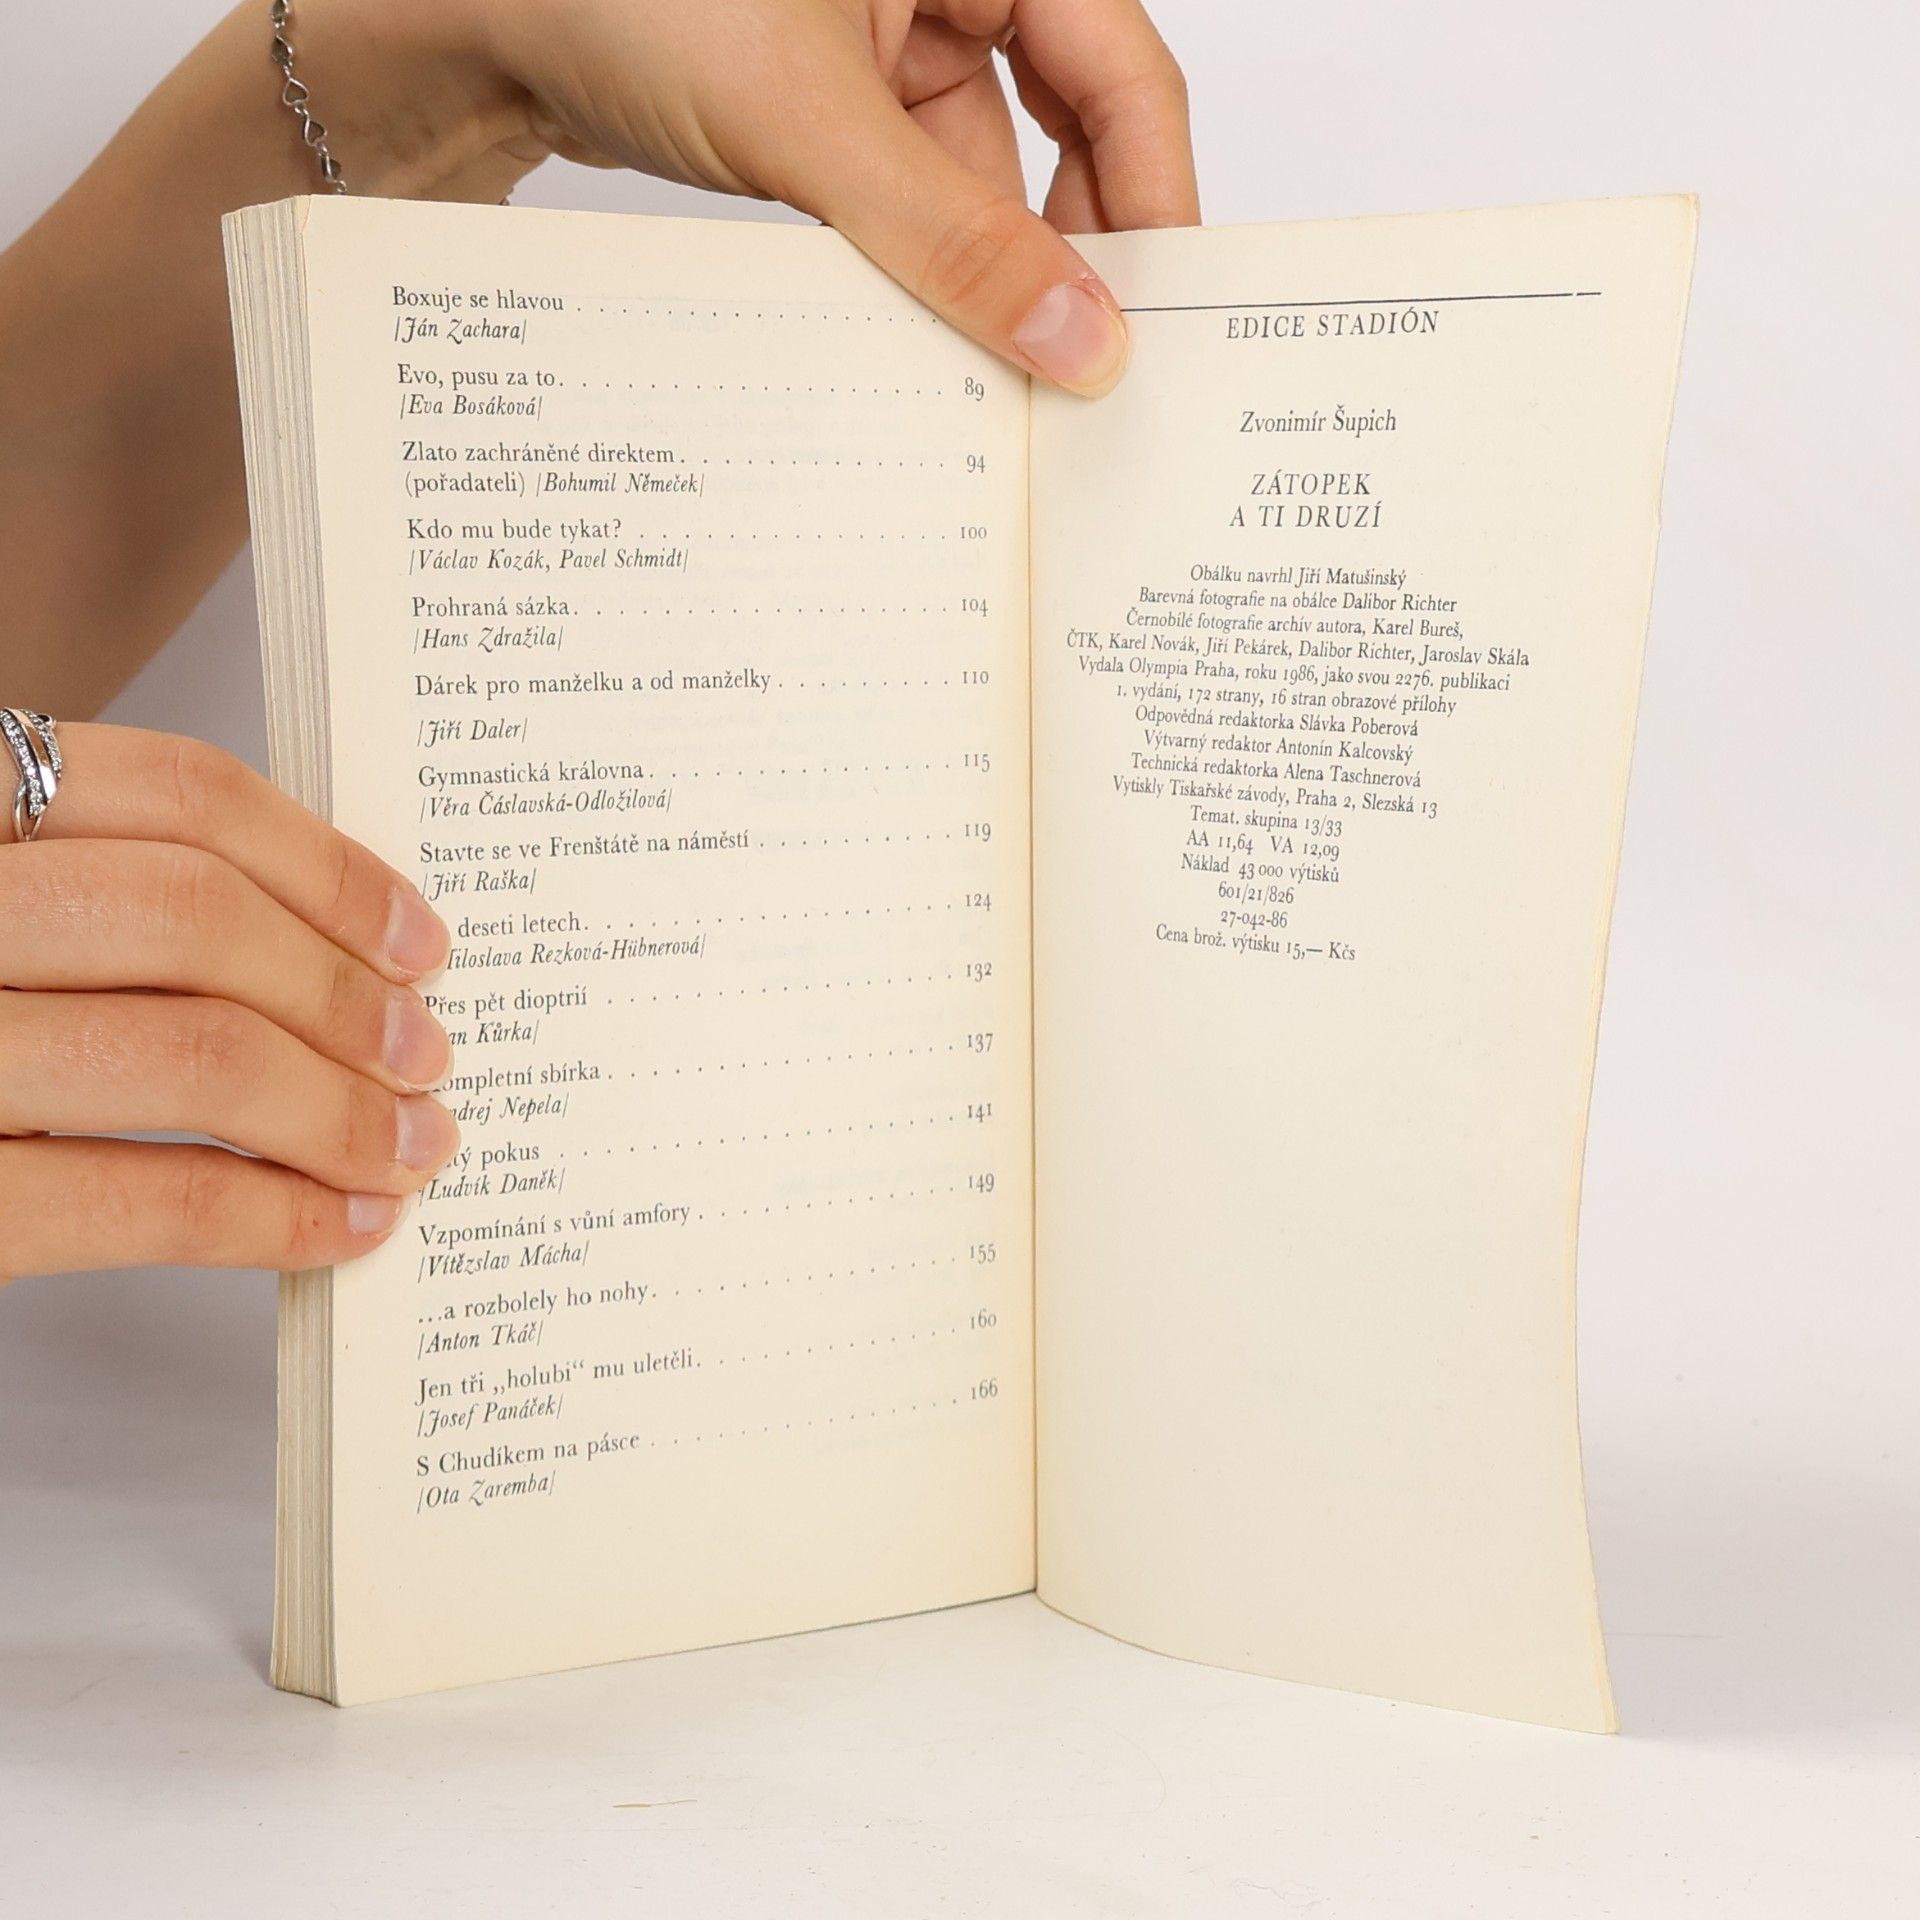 Boxuje se hlavou . . . . . . . . . . . . . . . .
|Ján Zachara|
Evo, pusu za to. . . . . . . . . . . . . . . . . . 89
|Eva Bosáková|
Zlato zachráněné direktem. . . . . . . . . . . . . 94
(pořadateli) |Bohumil Němeček|
Kdo mu bude tykat? . . . . . . . . . . . . . . . 100
|Václav Kozák, Pavel Schmidt|
Prohraná sázka. . . . . . . . . . . . . . . . . . 104
|Hans Zdražila|
Dárek pro manželku a od manželky . . . . . . . . . 110
|Jiří Daler|
Gymnastická královna. . . . . . . . . . . . . . . 115
|Věra Čáslavská-Odložilová|
Stavte se ve Frenštátě na náměstí . . . . . . . . . . 119
|Jiří Raška|
deseti letech. . . . . . . . . . . . . . . . . 124
Rezková-Hübnerová|
Přes pět dioptrií . . . . . . . . . . . . . . . . 132
Kůrka|
sbírka . . . . . . . . . . . . . . . . 137
Nepela|
pokus . . . . . . . . . . . . . . . . . . 141
|Ludvík Daněk|
Vzpomínání s vůní amfory . . . . . . . . . . . . 149
|Vítězslav Mácha|
...a rozbolely ho nohy. . . . . . . . . . . . . . . 155
|Anton Tkáč|
Jen tři „holubi“ mu uletěli. . . . . . . . . . . . . 160
|Josef Panáček|
S Chudíkem na pásce . . . . . . . . . . . . . . . 166
|Ota Zaremba|
EDICE STADIÓN
Zvonimír Šupich
ZÁTOPEK
A TI DRUZÍ
Obálku navrhl Jiří Matušinský
Barevná fotografie na obálce Dalibor Richter
Černobílé fotografie archív autora, Karel Bureš,
ČTK, Karel Novák, Jiří Pekárek, Dalibor Richter, Jaroslav Skála
Vydala Olympia Praha, roku 1986, jako svou 2276. publikaci
1. vydání, 172 strany, 16 stran obrazové přílohy
Odpovědná redaktorka Slávka Poberová
Výtvarný redaktor Antonín Kalcovský
Technická redaktorka Alena Taschnerová
Vytiskly Tiskařské závody, Praha 2, Slezská 13
Temat. skupina 13/33
AA 11,64 VA 12,09
Náklad 43 000 výtisků
601/21/826
27-042-86
Cena brož. výtisku 15,— Kčs